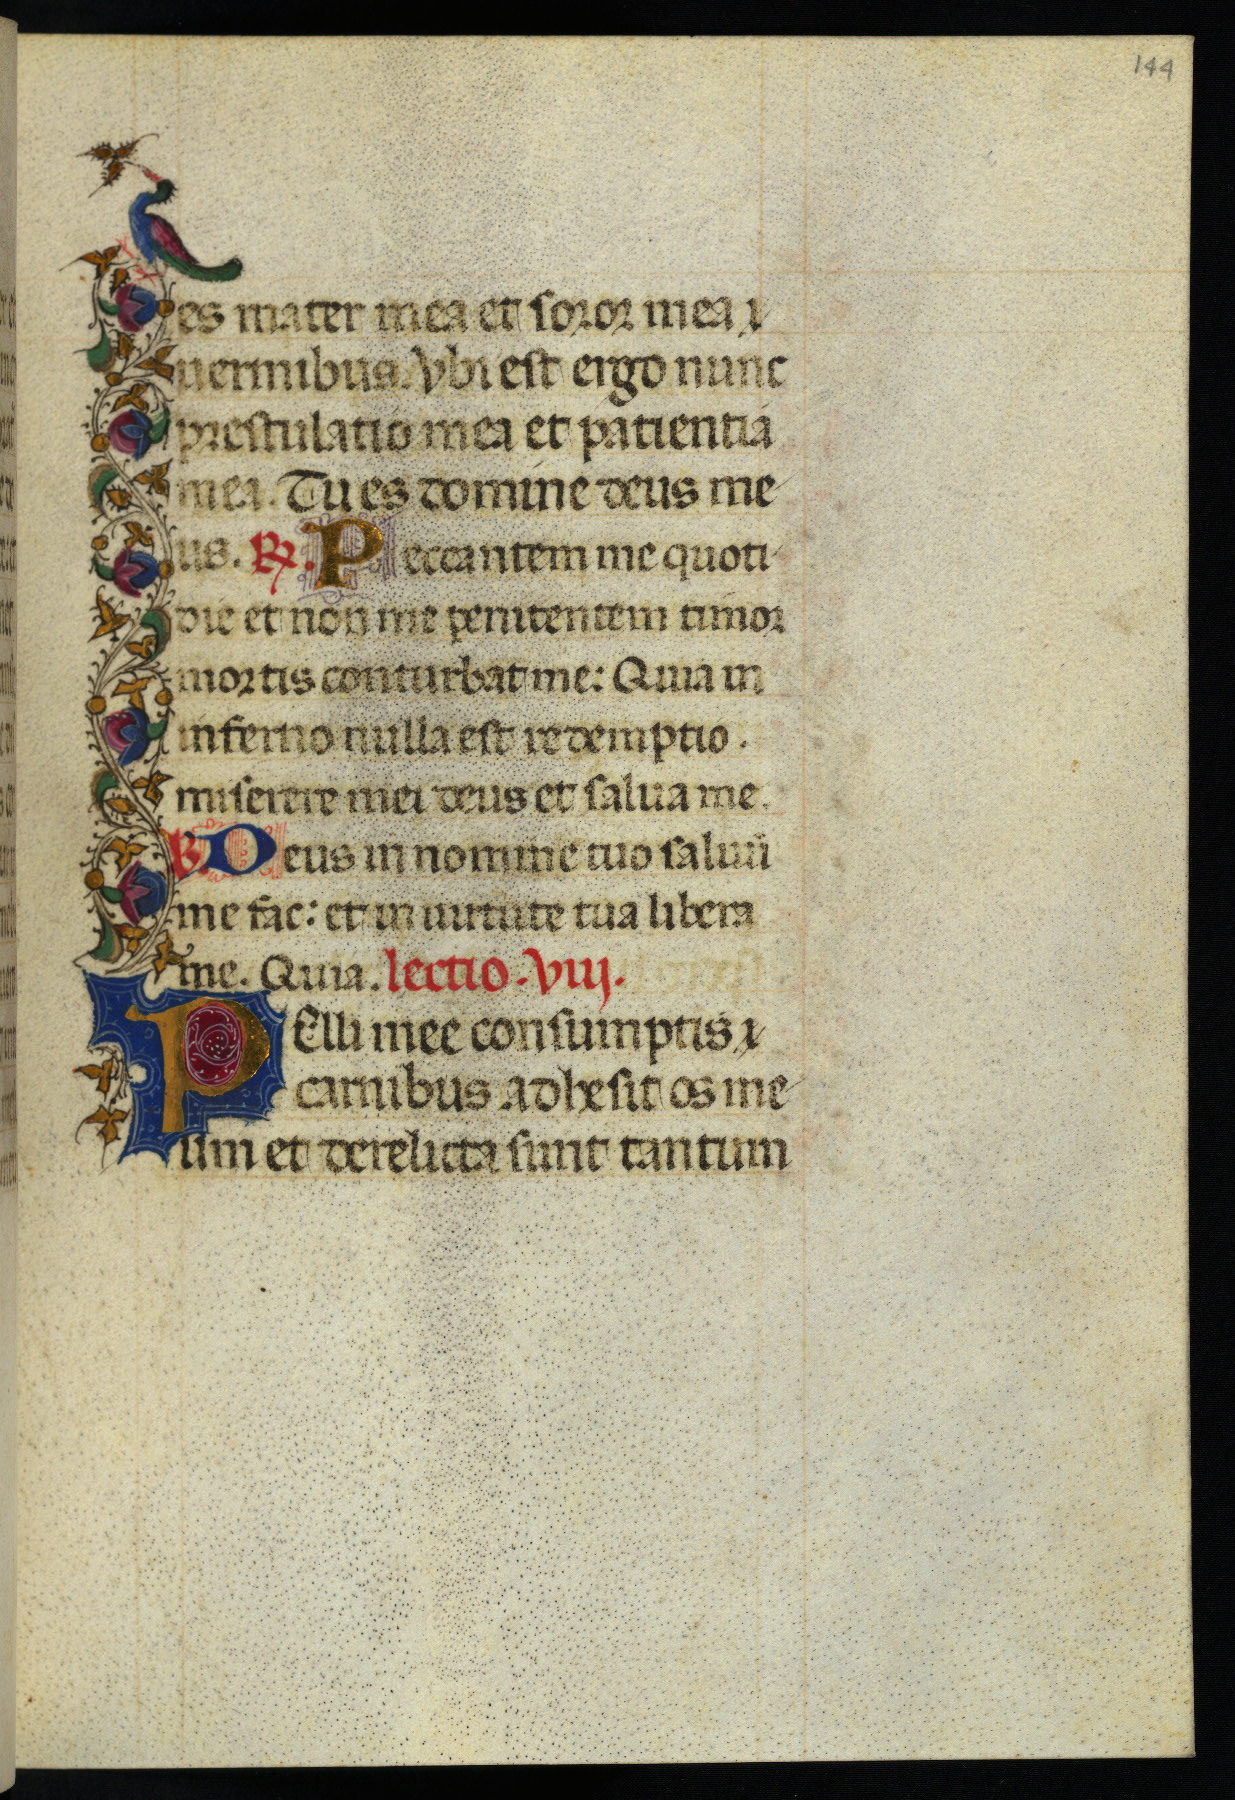 144
es mater mea et soror mea ⁊
uermibus. Vbi est ergo nunc
prestulatio mea et patientia
mea. Tu es domine deus me
us. ℟. Peccantem me quoti
die et non me penitentem timor
mortis conturbat me: Quia in
inferno nulla est redemptio.
miserere mei deus et salua me.
℣ Deus in nomine tuo saluū
me fac: et in uirtute tua libera
me. Quia. lectio. Viij.
PElli mee consumptis ⁊
carnibus adhesit os me
um et derelicta sunt tantum